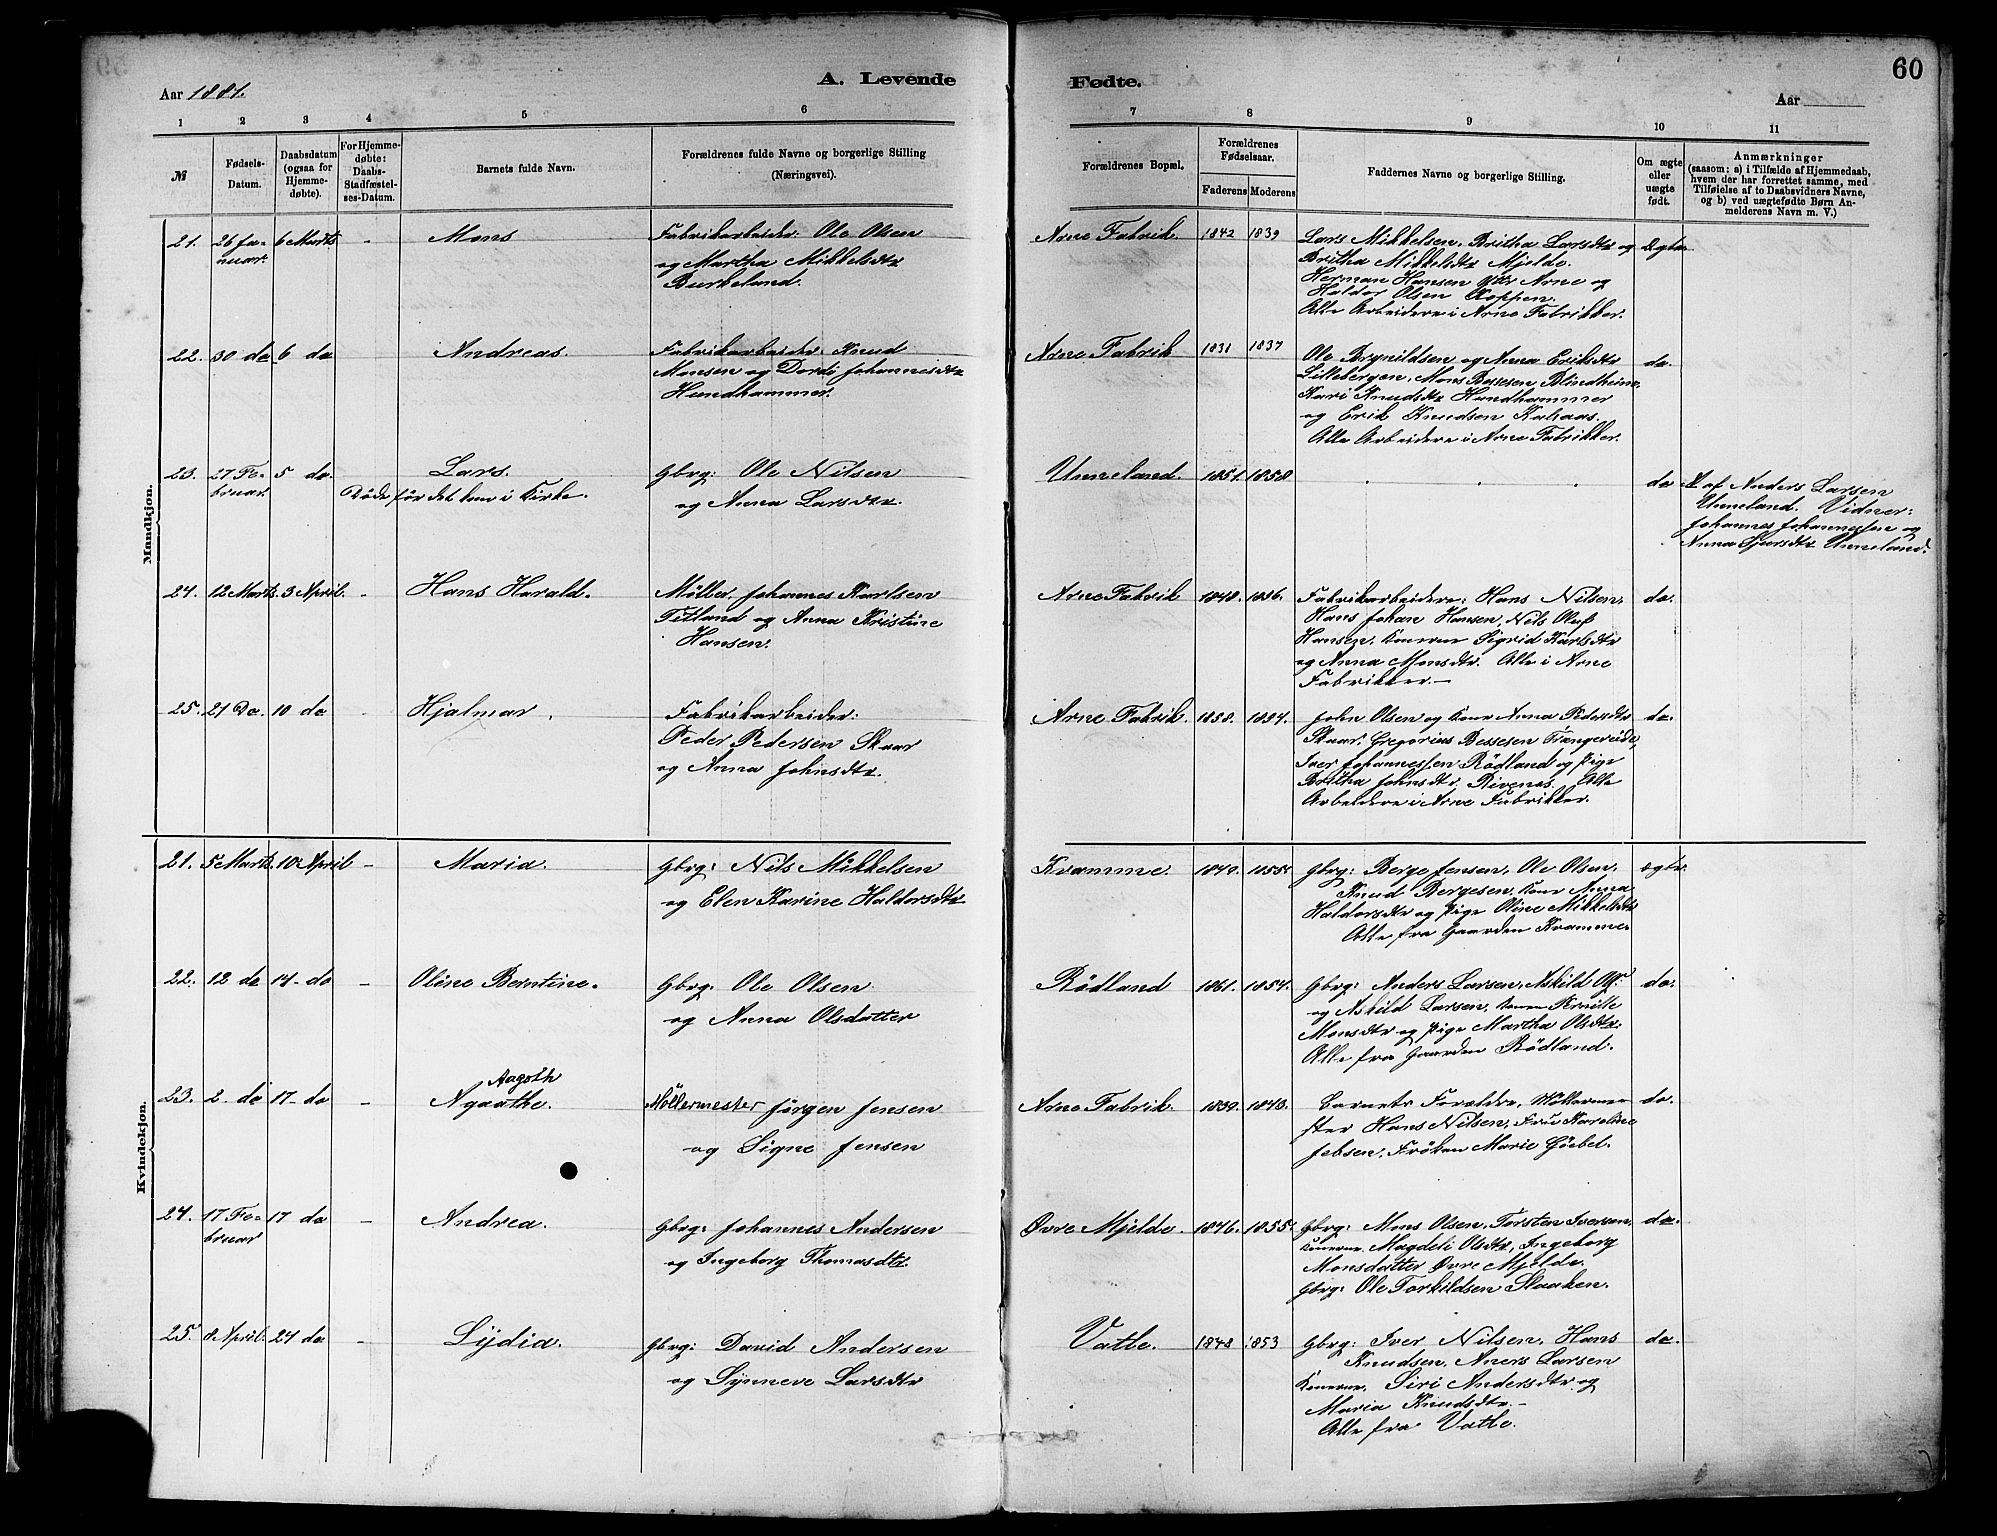 60
Aar 1881.
A. Levende
Fødte.
Aar
1 2 3 4 5 6 7 8 9 10 11
№
Fødsels-
Datum.
Daabsdatum
(ogsaa for
Hjemme-
døbte).
For Hjemme-
døbte:
Daabs-
Stadfæstel-
ses-Datum.
Barnets fulde Navn.
Forældrenes fulde Navne og borgerlige Stilling
(Næringsvei).
Forældrenes Bopæl.
Forældrenes
Fødselsaar.
Faderens Moderens
Faddernes Navne og borgerlige Stilling.
Om ægte
eller
uægte
født.
Anmærkninger
(saasom: a) i Tilfælde af Hjemmedaab,
hvem der har forrettet samme, med
Tilføielse af to Daabsvidners Navne,
og b) ved uægtefødte Børn An-
melderens Navn m. V.)
Mandkjøn.
21. 26 Ja-
nuar.
6 Marts
-
Mons
Fabrikarbeider: Ole Olsen
og Martha Mikkelsdtr
Burkeland.
Arne Fabrik. 1842 1839
Lars Mikkelsen, Britha Larsdtr og
Britha Mikkelsdtr Mjelde.
Herman Hansen Ytre Arne og
Haldor Olsen Koppen.
Alle Arbeidere i Arne Fabrikker.
Ægte
22. 30 do 6 do
Andreas.
Fabrikarbeider: Knud
Monsen og Dordi Johannesdtr
Hundhammer.
Arne Fabrik 1831 1837
Ole Brynildsen og Anna Eriksdtr
Lillebergen, Mons Bessesen Blindheim,
Kari Knudsdtr Hundhammer
og Erik Knudsen Kalsaas.
Alle Arbeidere i Arne Fabrikker.
do.
23. 27 Fe-
bruar.
5 do.
Lars.
Døde før det kom i Kirke.
Gbrg: Ole Nilsen
og Anna Larsdtr.
Unneland. 1851. 1858
do
af Anders Larsen
Unneland. Vidner:
Johannes Johannessen og
Anna Sjursdtr Unneland.
24. 12 Marts. 3 April. -
Hans Harald.
Møller. Johannes Karlsen
Titland og Anna Kristine
Hansen.
Arne Fabrik 1848. 1856.
Fabrikarbeidere: Hans Nilsen,
Hans Johan Hansen, Nils Oluf
Hansen, Konerne Sigrid Karlsdtr
og Anna Monsdtr. Alle i Arne
Fabrikker.-
do.
25. 21 Do. 10 do
Hjalmar.
Fabrikarbeider:
Peder Pedersen Skaar
og Anna Johnsdtr.
Arne Fabrik. 1858. 1854.
John Olsen og Kone Anna Pedersdtr
Skaar, Gregorius Bessesen Trængereide,
Iver Johannessen Rödland og Pige
Britha Johnsdtr Rivenes. Alle
Arbeidere i Arne Fabrikker.
do.
Kvindekjøn.
21. 5 Marts. 10 April -
Maria.
Gbrg: Nils Mikkelsen
og Elen Karine Haldorsdtr
Kvamme. 1849. 1855.
Gbrg: Berge Jensen, Ole Olsen,
Knud Bergesen, Kone Anna
Haldorsdtr og Pige Oline Mikkelsdtr
Alle fra Gaarden Kvamme.
ægte
22. 12 do 14 do -
Oline Berntine.
Gbrg: Ole Olsen
og Anna Olsdatter
Rödland 1861. 1854.
Gbrg: Anders Larsen, Askild
og Askild Larsen, Kone
Monsdtr og Pige Martha Olsdtr.
Alle fra Gaarden Rödland.
do.
23. 2 do 17 do -
Aagoth
Agaathe.
Møllermester Jørgen Jensen
og Signe Jensen
Arne Fabrik. 1839. 1843.
Barnets Forældre, Møllerme-
ster Hans Nilsen, Frue Karoline
Jebsen, Frøken Marie Göebel.
do.
24. 17 Fe-
bruar
17 do -
Andrea.
Gbrg: Johannes Andersen
og Ingeborg Thomasdtr.
Øvre Mjelde. 1846. 1855.
Gbrg: Mons Olsen, Torsten Iversen,
Konerne Magdeli Olsdtr, Ingeborg
Monsdatter Øvre Mjelde.
Gbrg: Ole Torkildsen Slaaken.
do.
25. 8 April. 24 do -
Lydia.
Gbrg: David Andersen
og Synneve Larsdtr
Vatle. 1848 1853
Gbrg: Iver Nilsen, Hans
Knudsen, Aners Larsen
Konerne, Siri Andersdtr og
Maria Knudsdtr.-
Alle fra Vatle.
do.